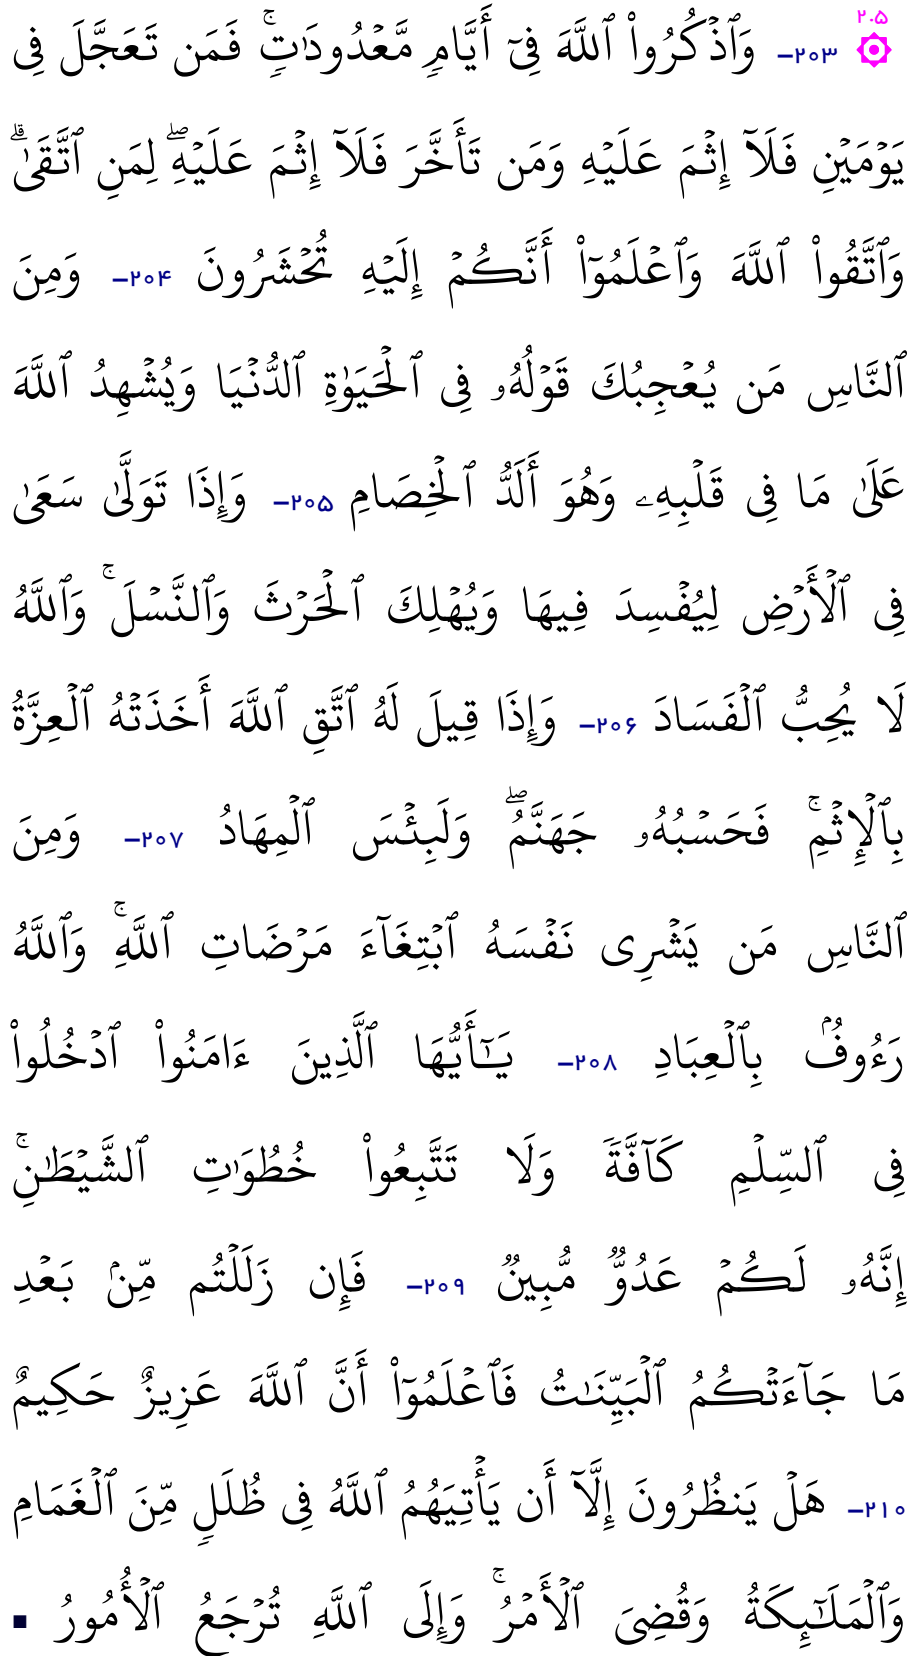 ۲.۵
۞ ۲۰۳- وَٱذۡكُرُواْ ٱللَّهَ فِيٓ أَيَّامٖ مَّعۡدُودَٰتٖۚ فَمَن تَعَجَّلَ فِي
يَوۡمَيۡنِ فَلَآ إِثۡمَ عَلَيۡهِ وَمَن تَأَخَّرَ فَلَآ إِثۡمَ عَلَيۡهِۖ لِمَنِ ٱتَّقَىٰۗ
وَٱتَّقُواْ ٱللَّهَ وَٱعۡلَمُوٓاْ أَنَّكُمۡ إِلَيۡهِ تُحۡشَرُونَ ۲۰۴- وَمِنَ
ٱلنَّاسِ مَن يُعۡجِبُكَ قَوۡلُهُۥ فِي ٱلۡحَيَوٰةِ ٱلدُّنۡيَا وَيُشۡهِدُ ٱللَّهَ
عَلَىٰ مَا فِي قَلۡبِهِۦ وَهُوَ أَلَدُّ ٱلۡخِصَامِ ۲۰۵- وَإِذَا تَوَلَّىٰ سَعَىٰ
فِي ٱلۡأَرۡضِ لِيُفۡسِدَ فِيهَا وَيُهۡلِكَ ٱلۡحَرۡثَ وَٱلنَّسۡلَۚ وَٱللَّهُ
لَا يُحِبُّ ٱلۡفَسَادَ ۲۰۶- وَإِذَا قِيلَ لَهُ ٱتَّقِ ٱللَّهَ أَخَذَتۡهُ ٱلۡعِزَّةُ
بِٱلۡإِثۡمِۚ فَحَسۡبُهُۥ جَهَنَّمُۖ وَلَبِئۡسَ ٱلۡمِهَادُ ۲۰۷- وَمِنَ
ٱلنَّاسِ مَن يَشۡرِي نَفۡسَهُ ٱبۡتِغَآءَ مَرۡضَاتِ ٱللَّهِۚ وَٱللَّهُ
رَءُوفُۢ بِٱلۡعِبَادِ ۲۰۸- يَـٰٓأَيُّهَا ٱلَّذِينَ ءَامَنُواْ ٱدۡخُلُواْ
فِي ٱلسِّلۡمِ كَآفَّةٗ وَلَا تَتَّبِعُواْ خُطُوَٰتِ ٱلشَّيۡطَٰنِۚ
إِنَّهُۥ لَكُمۡ عَدُوّٞ مُّبِينٞ ۲۰۹- فَإِن زَلَلۡتُم مِّنۢ بَعۡدِ
مَا جَآءَتۡكُمُ ٱلۡبَيِّنَٰتُ فَٱعۡلَمُوٓاْ أَنَّ ٱللَّهَ عَزِيزٌ حَكِيمٌ
۲۱۰- هَلۡ يَنظُرُونَ إِلَّآ أَن يَأۡتِيَهُمُ ٱللَّهُ فِي ظُلَلٖ مِّنَ ٱلۡغَمَامِ
وَٱلۡمَلَـٰٓئِكَةُ وَقُضِيَ ٱلۡأَمۡرُۚ وَإِلَى ٱللَّهِ تُرۡجَعُ ٱلۡأُمُورُ ▪